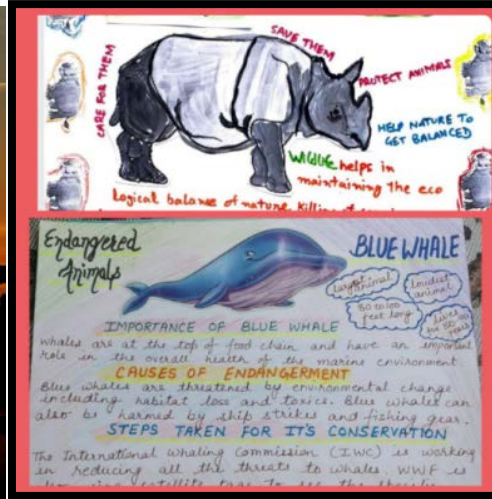 CARE FOR THEM
SAVE THEM
PROTECT ANIMALS
HELP NATURE TO
GET BALANCED
WILDLIFE helps in
maintaining the eco
logical balance of nature. Killing of
Endangered
Animals
BLUE WHALE
largest animal
loudest animal
80 to 100
feet long
lives
for 80-90
years
IMPORTANCE OF BLUE WHALE
Whales are at the top of food chain and have an important
role in the overall health of the marine environment.
CAUSES OF ENDANGERMENT
Blue whales are threatened by environmental change
including habitat loss and toxics. Blue whales can
also be harmed by ship strikes and fishing gear.
STEPS TAKEN FOR IT'S CONSERVATION
The International Whaling Commission (IWC) is working
in reducing all the threats to whales. WWF is